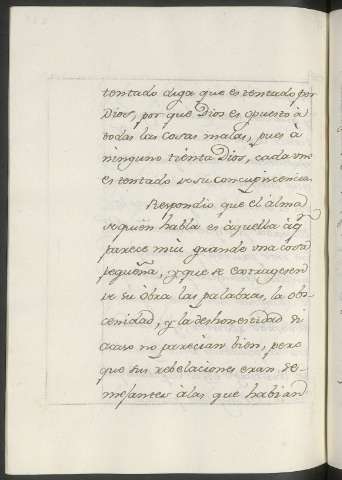 tentado diga que es tentado por
Dios, por que Dios es opuesto à
todas las cosas malas, pues à
ninguno tienta Dios, cada uno
es tentado de su concupiscencia.
Respondio que el alma
de quien habla es aquella à q
parece mui grande una cosa
pequeña, y que se
de su Obra las palabras, la obs-
cenidad, y la deshonestidad si
acaso no parecian bien, pero
que sus rebelaciones eran se-
mejantes à las que habian